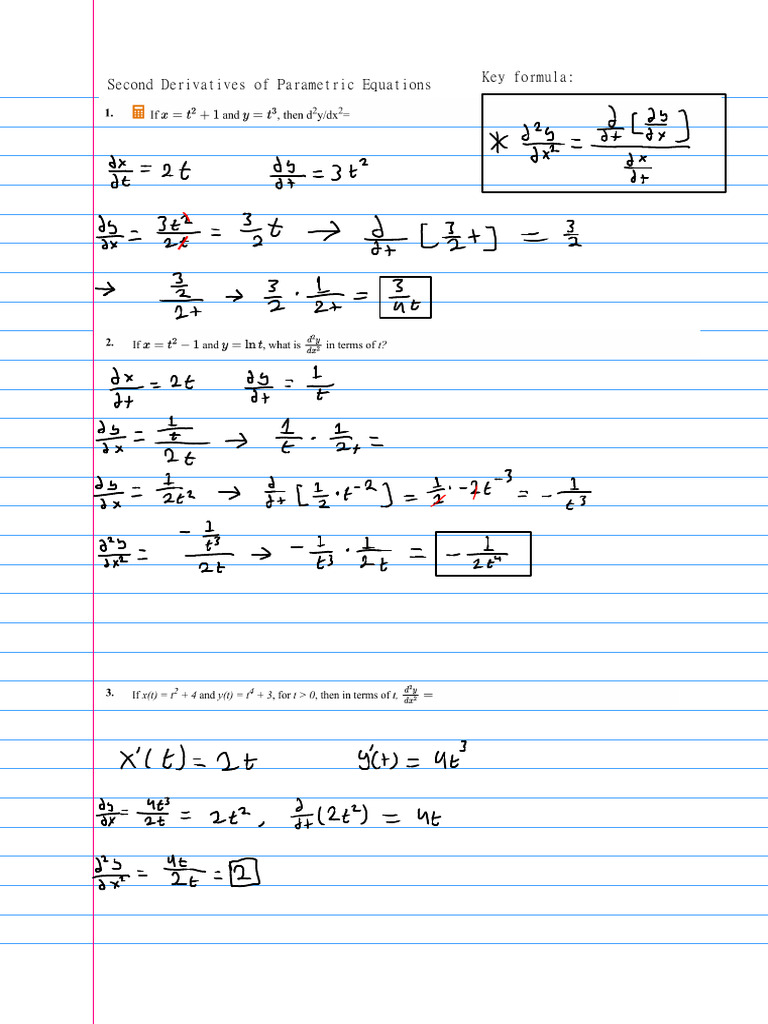 Second Derivatives of Parametric Equations
Key formula:
* d²y/dx² = (d/dt [dy/dx]) / (dx/dt)
1. If x = t² + 1 and y = t³, then d²y/dx²=
dx/dt = 2t dy/dt = 3t²
dy/dx = 3t²/2t = 3/2 t → d/dt [3/2 t] = 3/2
→ (3/2)/2t → 3/2 · 1/2t = 3/4t
2. If x = t² − 1 and y = ln t, what is d²y/dx² in terms of t?
dx/dt = 2t dy/dt = 1/t
dy/dx = (1/t)/2t → 1/t · 1/2t =
dy/dx = 1/2t² → d/dt [1/2 · t⁻²] = 1/2 · -2t⁻³ = - 1/t³
d²y/dx² = (- 1/t³)/2t → - 1/t³ · 1/2t = - 1/2t⁴
3. If x(t) = t² + 4 and y(t) = t⁴ + 3, for t > 0, then in terms of t, d²y/dx² =
x'(t) = 2t y'(t) = 4t³
dy/dx = 4t³/2t = 2t², d/dt (2t²) = 4t
d²y/dx² = 4t/2t = 2